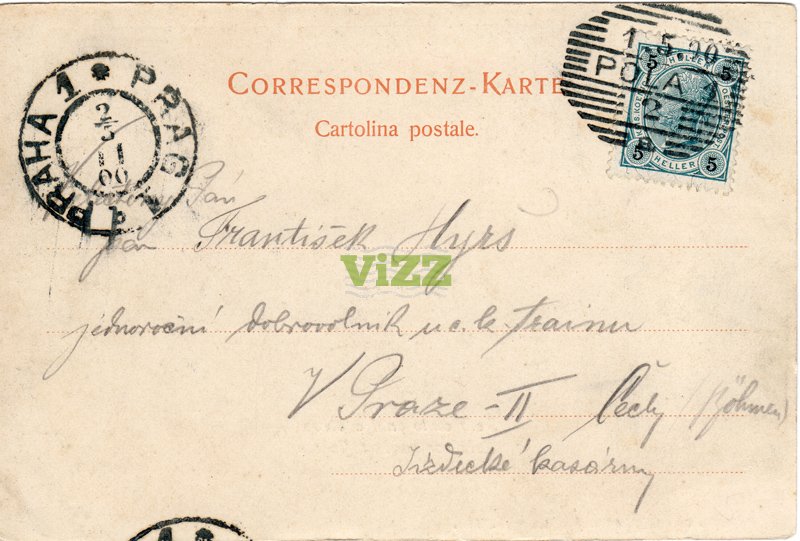 CORRESPONDENZ-KARTE
Cartolina postale.
PRAHA 1 * PRAG 1
2/5
11
00
1.5.00
POLA 1
2
5 HELLER 5
Pán
pan František Hyrš
ViZZ
jednoroční dobrovolník u c. k. trainu
V Praze - II Čechy (Böhmen)
kasárny
1 *